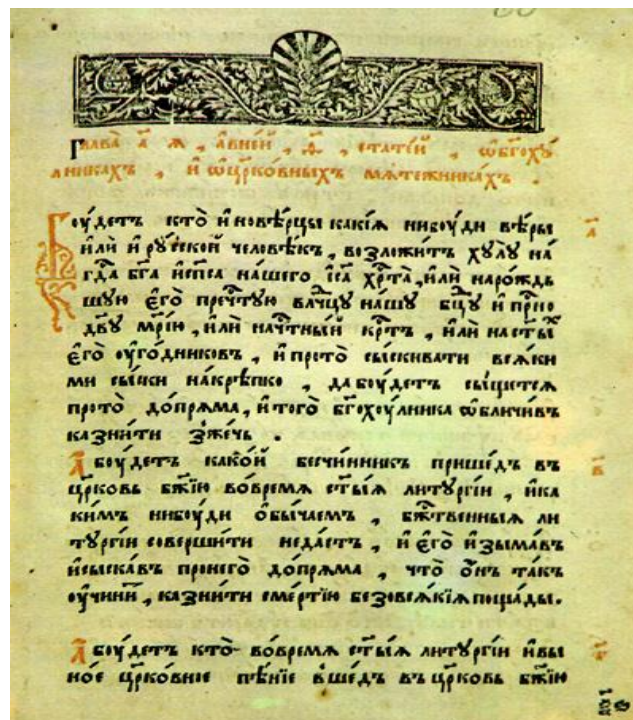 Глава̀ а҃ я , а в не́й , ѳ҃ , стате́й , ѡ бг҃охꙋ́
лникахъ , и҆ ѡ цр҃ко́вныхъ мѧте́жникахъ .
Боу́детъ кто̀ и҆новѣ́рцы какі́ѧ нибоу́ди вѣ́ры
и҆лѝ и҆ рꙋ́сской человѣ́къ , возложи́тъ хꙋлꙋ̀ на́
гдⷭ҇а бг҃а и҆ сп҃са на́шего і҆са хрⷭ҇та̀ , и҆лѝ наро́ждь
шꙋю є҆го̀ пречⷭ҇тꙋю влⷣчцꙋ на́шꙋ бцⷣꙋ и҆ прⷭ҇но
дв҃ꙋ мр҃і́ю , и҆лѝ на чⷭ҇тны́й крⷭ҇тъ , и҆лѝ на ст҃ы́хъ
є҆го̀ оу҆го́дниковъ , и҆ про то̀ сы́скивати всѧ́ки
ми сы́ски на́крѣпко , да боу́детъ сы́щетсѧ
про то̀ до́прѧма , и҆ того̀ бг҃охоу́лника ѡ҆бличи́въ
казни́ти зже́чь .
А҆ боу́детъ како́й безчи́нникъ прише́дъ въ
цр҃ковь бж҃ію во́времѧ ст҃ы́ѧ литꙋргі́и , и҆ ка
ки́мъ нибоу́ди ѻ҆бы́чаемъ , бжⷭ҇твенныѧ ли
тꙋргі́и соверши́ти неда́стъ , и҆ є҆го̀ и҆зыма́въ
и҆ сыска́въ про него̀ до́прѧма , что̀ ѻ҆́нъ та́къ
оу҆чини́тъ , казни́ти сме́ртію безовсѧ́кіѧ поща́ды .
А҆ боу́детъ кто̀ во́времѧ ст҃ы́ѧ литꙋргі́и и҆ в ы
но́е цр҃ко́вное пѣ́ніе вше́дъ въ цр҃ковь бж҃ію
а҃
в҃
г҃